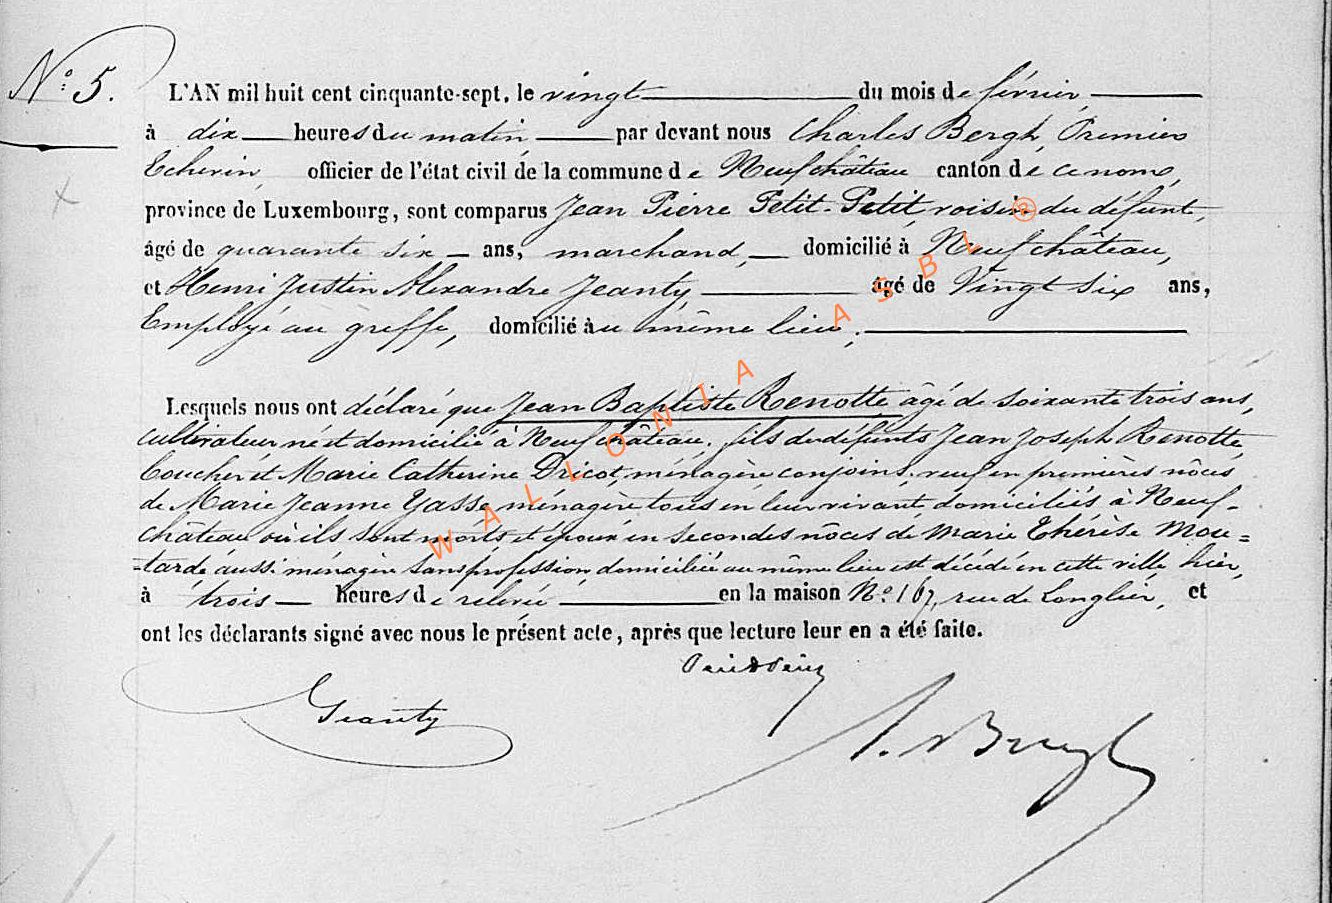 N° 5.
L'AN mil huit cent cinquante-sept, le vingt du mois de février,
à dix heures du matin, par devant nous Charles Bergh, Premier
Echevin, officier de l'état civil de la commune de Neufchâteau canton de ce nom,
province de Luxembourg, sont comparus Jean Pierre Petit-Petit, voisin du défunt,
âgé de quarante six ans, marchand, domicilié à Neufchâteau,
et Henri Justin Alexandre Jeanty, âgé de Vingt six ans,
Employé au greffe, domicilié au même lieu;
Lesquels nous ont déclaré que Jean Baptiste Renotte âgé de soixante trois ans,
cultivateur, né et domicilié à Neufchâteau, fils de défunts Jean Joseph Renotte,
boucher et Marie Catherine Dricot, ménagère conjoins, veuf en premières nôces
de Marie Jeanne Yasse, ménagère tous en leur vivant domiciliés à Neuf-
château où ils sont morts et époux en secondes nôces de Marie Thérèse Mou=
=tarde aussi ménagère sans profession, domiciliée au même lieu est décédé en cette ville hier,
à trois heures de relevée en la maison N° 167, rue de Longlier, et
ont les déclarants signé avec nous le présent acte, après que lecture leur en a été faite.
Jeanty
WALLONIA ASBL ®